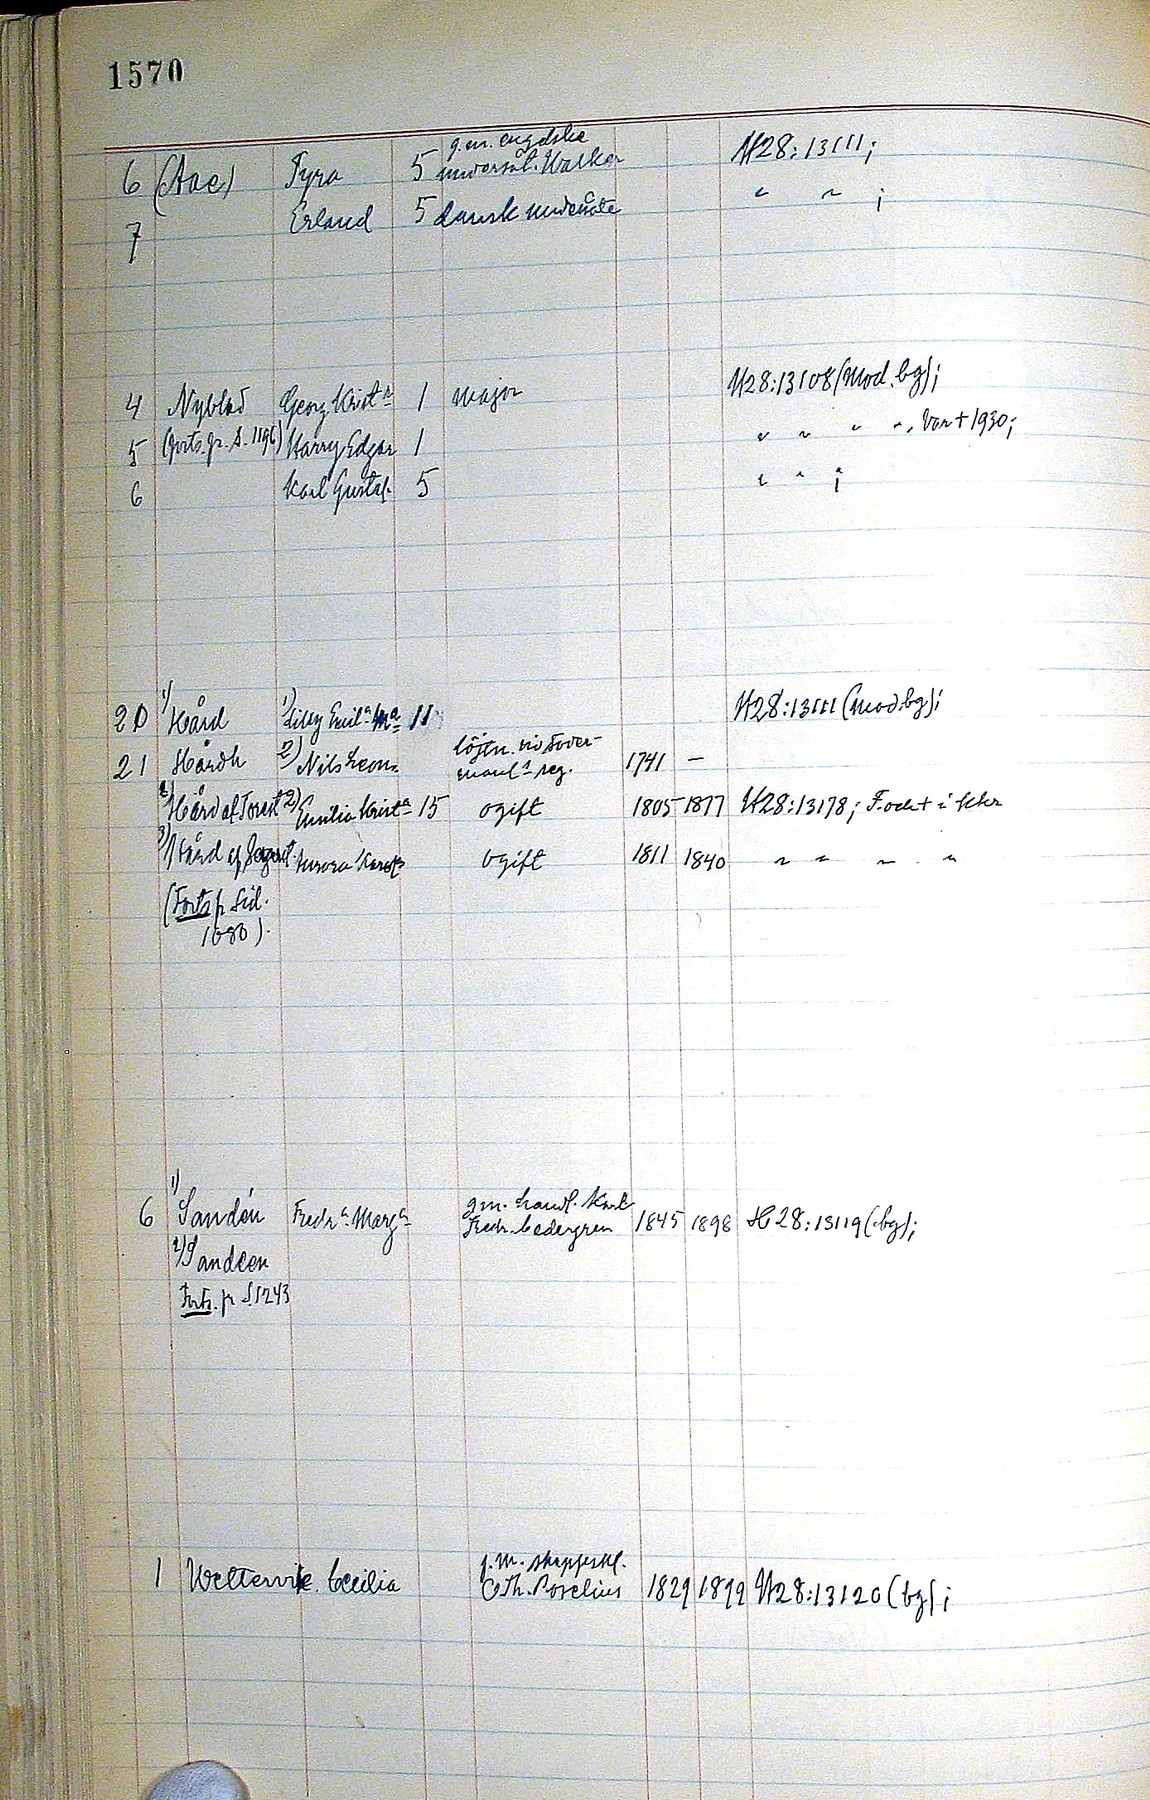 1570
6 (Aae) Tyra 5 g.m. engelske H28:13111;
Walker
7 Erland 5 dansk undersåte " " ;
4 Nyblad Georg Krist:n 1 major H28:13108 (Mod. bg);
5 (Forts. fr. s. 1196) Harry Edgar 1 " " " ", Var † 1930;
6 Karl Gustaf 5 " " ;
20 1) Hård 1) Lilly Emil:a 11 H28:13111 (mod. bg);
21 Hårdh 2) Nils löjtn. vid Söder- 1741 —
manl:s reg.
2) Hård af Torest. 2) Emilia Krist:a 15 ogift 1805 1877 H28:13178; F. och † i
3) Hård af Aurora ogift 1811 1840 " " " "
(Forts fr Sid.
1080).
6 1) Sandén Fredr:a Marg:a gm. handl. Karl
Fredr. Cedergren 1845 1898 H28:13119 (bg);
2) Sandeen
Forts. fr S. 1243
1 Wettervik. Cecilia g.m. skeppskl.
Oth. Roselius 1829 1899 H28:13120 (bg);